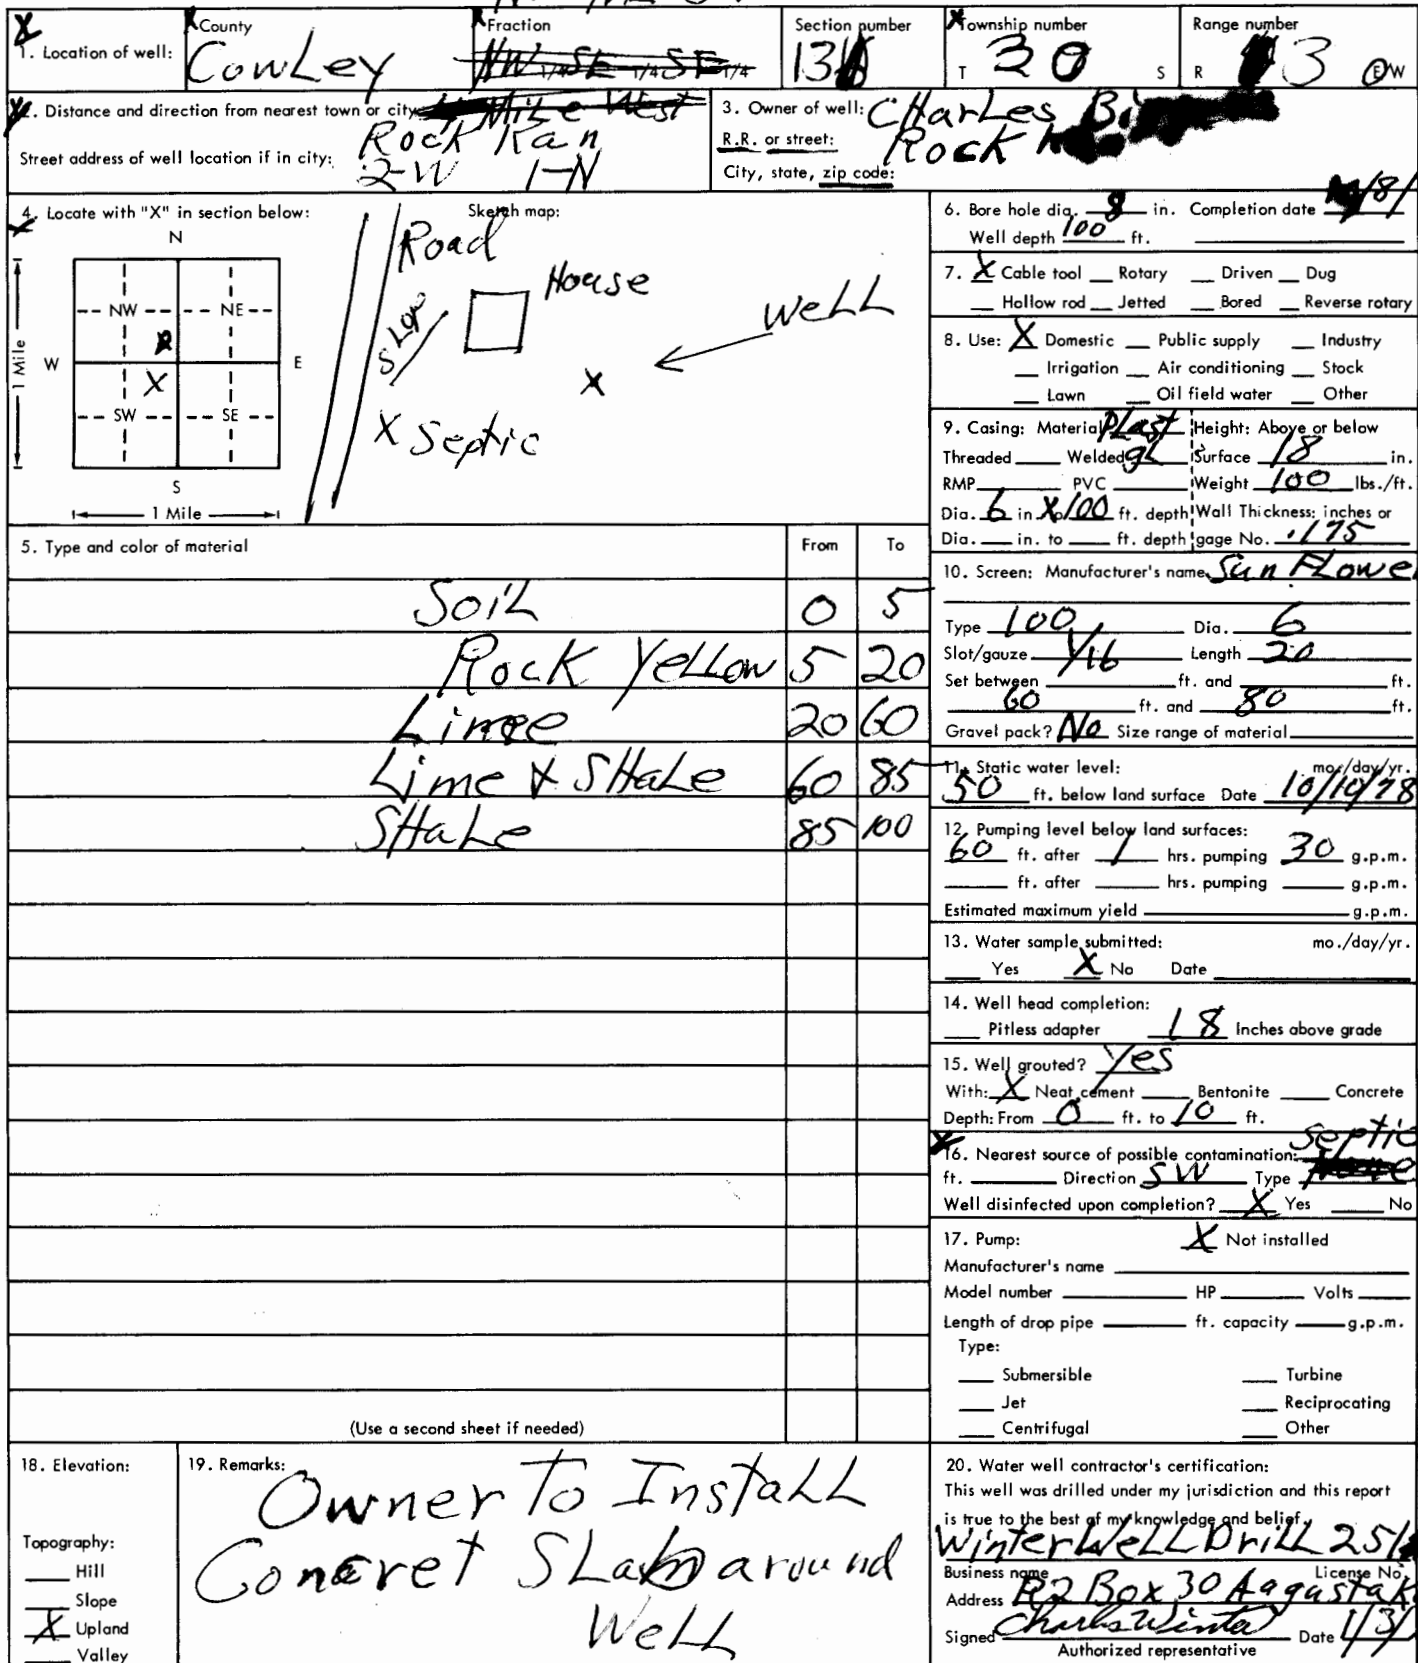 1. Location of well: County Cowley Fraction NW 1/4 SE 1/4 SE 1/4 Section number 13 Township number T 30 S Range number R 3 E W
2. Distance and direction from nearest town or city: Mile West
Rock Kan
Street address of well location if in city: 2-W 1-N
3. Owner of well: CHarLes
R.R. or street: Rock
City, state, zip code:
4. Locate with "X" in section below:
N
NW NE
W E
X
SW SE
S
1 Mile
1 Mile
Sketch map:
Road
House
SLop
weLL
X
X Septic
5. Type and color of material From To
SoiL 0 5
Rock YeLLow 5 20
Lime 20 60
Lime & SHaLe 60 85
SHaLe 85 100
(Use a second sheet if needed)
6. Bore hole dia. 8 in. Completion date
Well depth 100 ft.
7. X Cable tool Rotary Driven Dug
Hollow rod Jetted Bored Reverse rotary
8. Use: X Domestic Public supply Industry
Irrigation Air conditioning Stock
Lawn Oil field water Other
9. Casing: Material PLast Height: Above or below
Threaded Welded gL Surface 18 in.
RMP PVC Weight 100 lbs./ft.
Dia. 6 in. to 100 ft. depth Wall Thickness: inches or
Dia. in. to ft. depth gage No. .175
10. Screen: Manufacturer's name Sun FLowe
Type 100 Dia. 6
Slot/gauze 1/16 Length 20
Set between ft. and ft.
60 ft. and 80 ft.
Gravel pack? No Size range of material
11. Static water level: mo./day/yr.
50 ft. below land surface Date 10/10/78
12. Pumping level below land surfaces:
60 ft. after 1 hrs. pumping 30 g.p.m.
ft. after hrs. pumping g.p.m.
Estimated maximum yield g.p.m.
13. Water sample submitted: mo./day/yr.
Yes X No Date
14. Well head completion:
Pitless adapter 18 Inches above grade
15. Well grouted? Yes
With: X Neat cement Bentonite Concrete
Depth: From 0 ft. to 10 ft.
16. Nearest source of possible contamination: Septic
ft. Direction SW Type
Well disinfected upon completion? X Yes No
17. Pump: X Not installed
Manufacturer's name
Model number HP Volts
Length of drop pipe ft. capacity g.p.m.
Type:
Submersible Turbine
Jet Reciprocating
Centrifugal Other
18. Elevation:
Topography:
Hill
Slope
X Upland
Valley
19. Remarks:
Owner To InstaLL
Concret SLab around
WeLL
20. Water well contractor's certification:
This well was drilled under my jurisdiction and this report
is true to the best of my knowledge and belief.
Winter WeLL DriLL 251
Business name License No.
Address R2 Box 30 Aagusta K
Signed Charles Winter Date 1/3/
Authorized representative